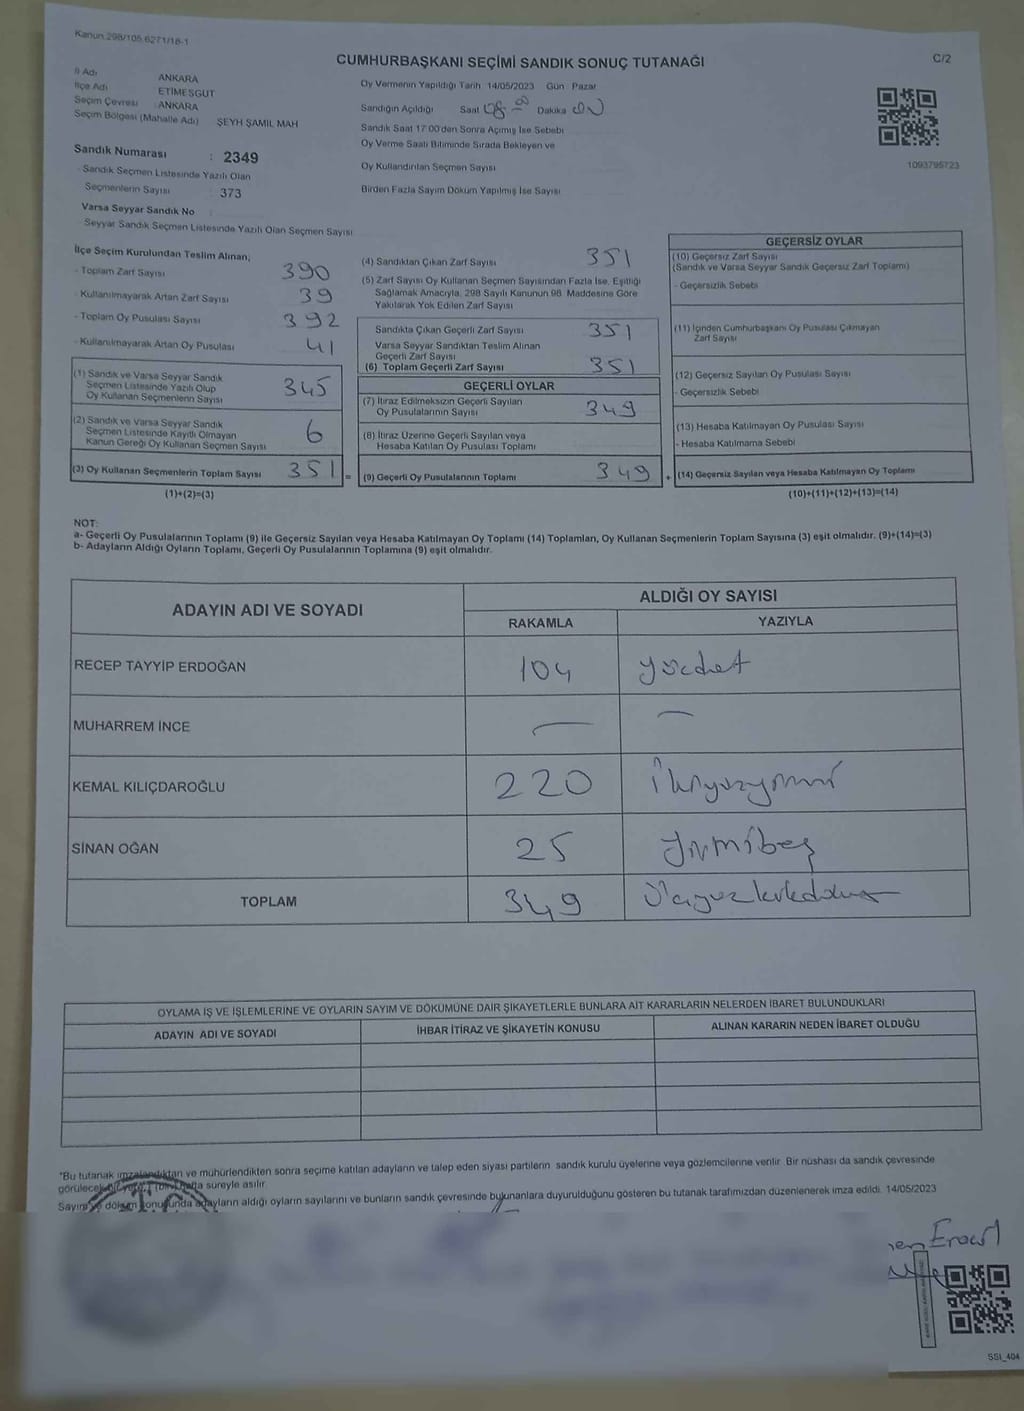 Kanun 298/105 6271/18-1
CUMHURBAŞKANI SEÇİMİ SANDIK SONUÇ TUTANAĞI
C/2
İl Adı ANKARA
İlçe Adı ETİMESGUT
Seçim Çevresi ANKARA
Seçim Bölgesi (Mahalle Adı) ŞEYH ŞAMİL MAH
Sandık Numarası : 2349
- Sandık Seçmen Listesinde Yazılı Olan
Seçmenlerin Sayısı : 373
Varsa Seyyar Sandık No
- Seyyar Sandık Seçmen Listesinde Yazılı Olan Seçmen Sayısı
Oy Vermenin Yapıldığı Tarih 14/05/2023 Gün Pazar
Sandığın Açıldığı Saat 08 Dakika
Sandık Saat 17:00'den Sonra Açılmış İse Sebebi
Oy Verme Saati Bitiminde Sırada Bekleyen ve
Oy Kullandırılan Seçmen Sayısı
Birden Fazla Sayım Döküm Yapılmış İse Sayısı
1093795723
İlçe Seçim Kurulundan Teslim Alınan;
- Toplam Zarf Sayısı 390
- Kullanılmayarak Artan Zarf Sayısı 39
- Toplam Oy Pusulası Sayısı 392
- Kullanılmayarak Artan Oy Pusulası 41
(1) Sandık ve Varsa Seyyar Sandık
Seçmen Listesinde Yazılı Olup
Oy Kullanan Seçmenlerin Sayısı 345
(2) Sandık ve Varsa Seyyar Sandık
Seçmen Listesinde Kayıtlı Olmayan
Kanun Gereği Oy Kullanan Seçmen Sayısı 6
(3) Oy Kullanan Seçmenlerin Toplam Sayısı 351 =
(1)+(2)=(3)
(4) Sandıktan Çıkan Zarf Sayısı 351
(5) Zarf Sayısı Oy Kullanan Seçmen Sayısından Fazla İse, Eşitliği
Sağlamak Amacıyla, 298 Sayılı Kanunun 98. Maddesine Göre
Yakılarak Yok Edilen Zarf Sayısı
Sandıkta Çıkan Geçerli Zarf Sayısı 351
Varsa Seyyar Sandıktan Teslim Alınan
Geçerli Zarf Sayısı
(6) Toplam Geçerli Zarf Sayısı 351
GEÇERLİ OYLAR
(7) İtiraz Edilmeksizin Geçerli Sayılan
Oy Pusulalarının Sayısı 349
(8) İtiraz Üzerine Geçerli Sayılan veya
Hesaba Katılan Oy Pusulası Toplamı
(9) Geçerli Oy Pusulalarının Toplamı 349 +
GEÇERSİZ OYLAR
(10) Geçersiz Zarf Sayısı
(Sandık ve Varsa Seyyar Sandık Geçersiz Zarf Toplamı)
- Geçersizlik Sebebi
(11) İçinden Cumhurbaşkanı Oy Pusulası Çıkmayan
Zarf Sayısı
(12) Geçersiz Sayılan Oy Pusulası Sayısı
- Geçersizlik Sebebi
(13) Hesaba Katılmayan Oy Pusulası Sayısı
- Hesaba Katılmama Sebebi
(14) Geçersiz Sayılan veya Hesaba Katılmayan Oy Toplamı
(10)+(11)+(12)+(13)=(14)
NOT:
a- Geçerli Oy Pusulalarının Toplamı (9) ile Geçersiz Sayılan veya Hesaba Katılmayan Oy Toplamı (14) Toplamları, Oy Kullanan Seçmenlerin Toplam Sayısına (3) eşit olmalıdır. (9)+(14)=(3)
b- Adayların Aldığı Oyların Toplamı, Geçerli Oy Pusulalarının Toplamına (9) eşit olmalıdır.
ADAYIN ADI VE SOYADI ALDIĞI OY SAYISI
RAKAMLA YAZIYLA
RECEP TAYYİP ERDOĞAN 104 yüzdört
MUHARREM İNCE — —
KEMAL KILIÇDAROĞLU 220 ikiyüzyirmi
SİNAN OĞAN 25 yirmibeş
TOPLAM 349 üçyüzkırkdokuz
OYLAMA İŞ VE İŞLEMLERİNE VE OYLARIN SAYIM VE DÖKÜMÜNE DAİR ŞİKAYETLERLE BUNLARA AİT KARARLARIN NELERDEN İBARET BULUNDUKLARI
ADAYIN ADI VE SOYADI İHBAR İTİRAZ VE ŞİKAYETİN KONUSU ALINAN KARARIN NEDEN İBARET OLDUĞU
"Bu tutanak imzalandıktan ve mühürlendikten sonra seçime katılan adayların ve talep eden siyasi partilerin sandık kurulu üyelerine veya gözlemcilerine verilir. Bir nüshası da sandık çevresinde
görülecek bir yere, 1 (bir) hafta süreyle asılır.
Sayım ve döküm sonucunda adayların aldığı oyların sayılarını ve bunların sandık çevresinde bulunanlara duyurulduğunu gösteren bu tutanak tarafımızdan düzenlenerek imza edildi. 14/05/2023
SSI_404